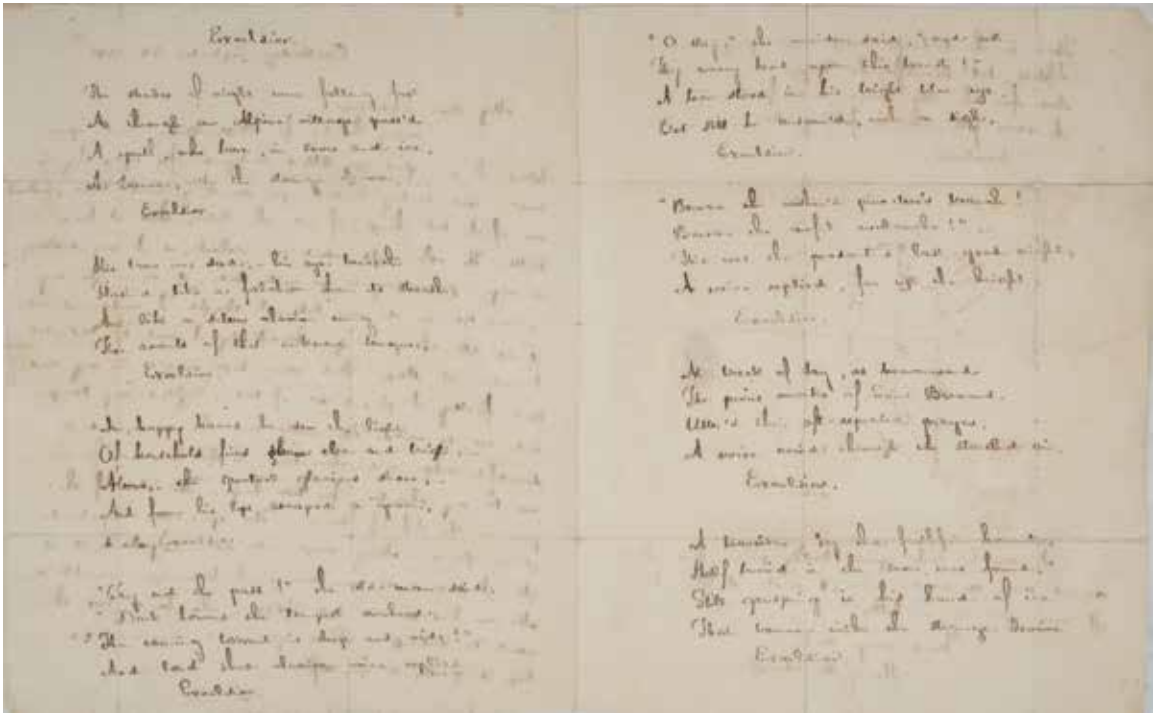 Excelsior.
The shades of night were falling fast
As through an Alpine village pass'd
A youth, who bore, in snow and ice,
A banner, with the strange device
Excelsior
His brow was sad; his eye beneath
Flashed like a falchion from its sheath;
And like a silver clarion rung
The accents of that unknown tongue,
Excelsior
In happy homes he saw the light
Of household fires gleam clear and bright,
Above, the spectral glaciers shone,
And from his lips escaped a groan,
Excelsior
"Try not the pass!" the old man said;
"Dark lowers the tempest overhead;
"The roaring torrent is deep and wide!"
And loud that clarion voice replied
Excelsior.
"O stay," the maiden said, "and rest
Thy weary head upon this breast!"
A tear stood in his bright blue eye,
But still he answered, with a sigh,
Excelsior.
"Beware the pine-tree's branch!
Beware the awful avalanche!"
This was the peasant's last good night,
A voice replied, far up the height,
Excelsior.
At break of day, as heavenward
The pious monks of Saint Bernard
Utter'd their oft-repeated prayer,
A voice cried through the startled air,
Excelsior.
A traveller, by the faithful hound,
Half buried in the snow was found,
Still grasping in his hand of ice
That banner with the strange device
Excelsior.